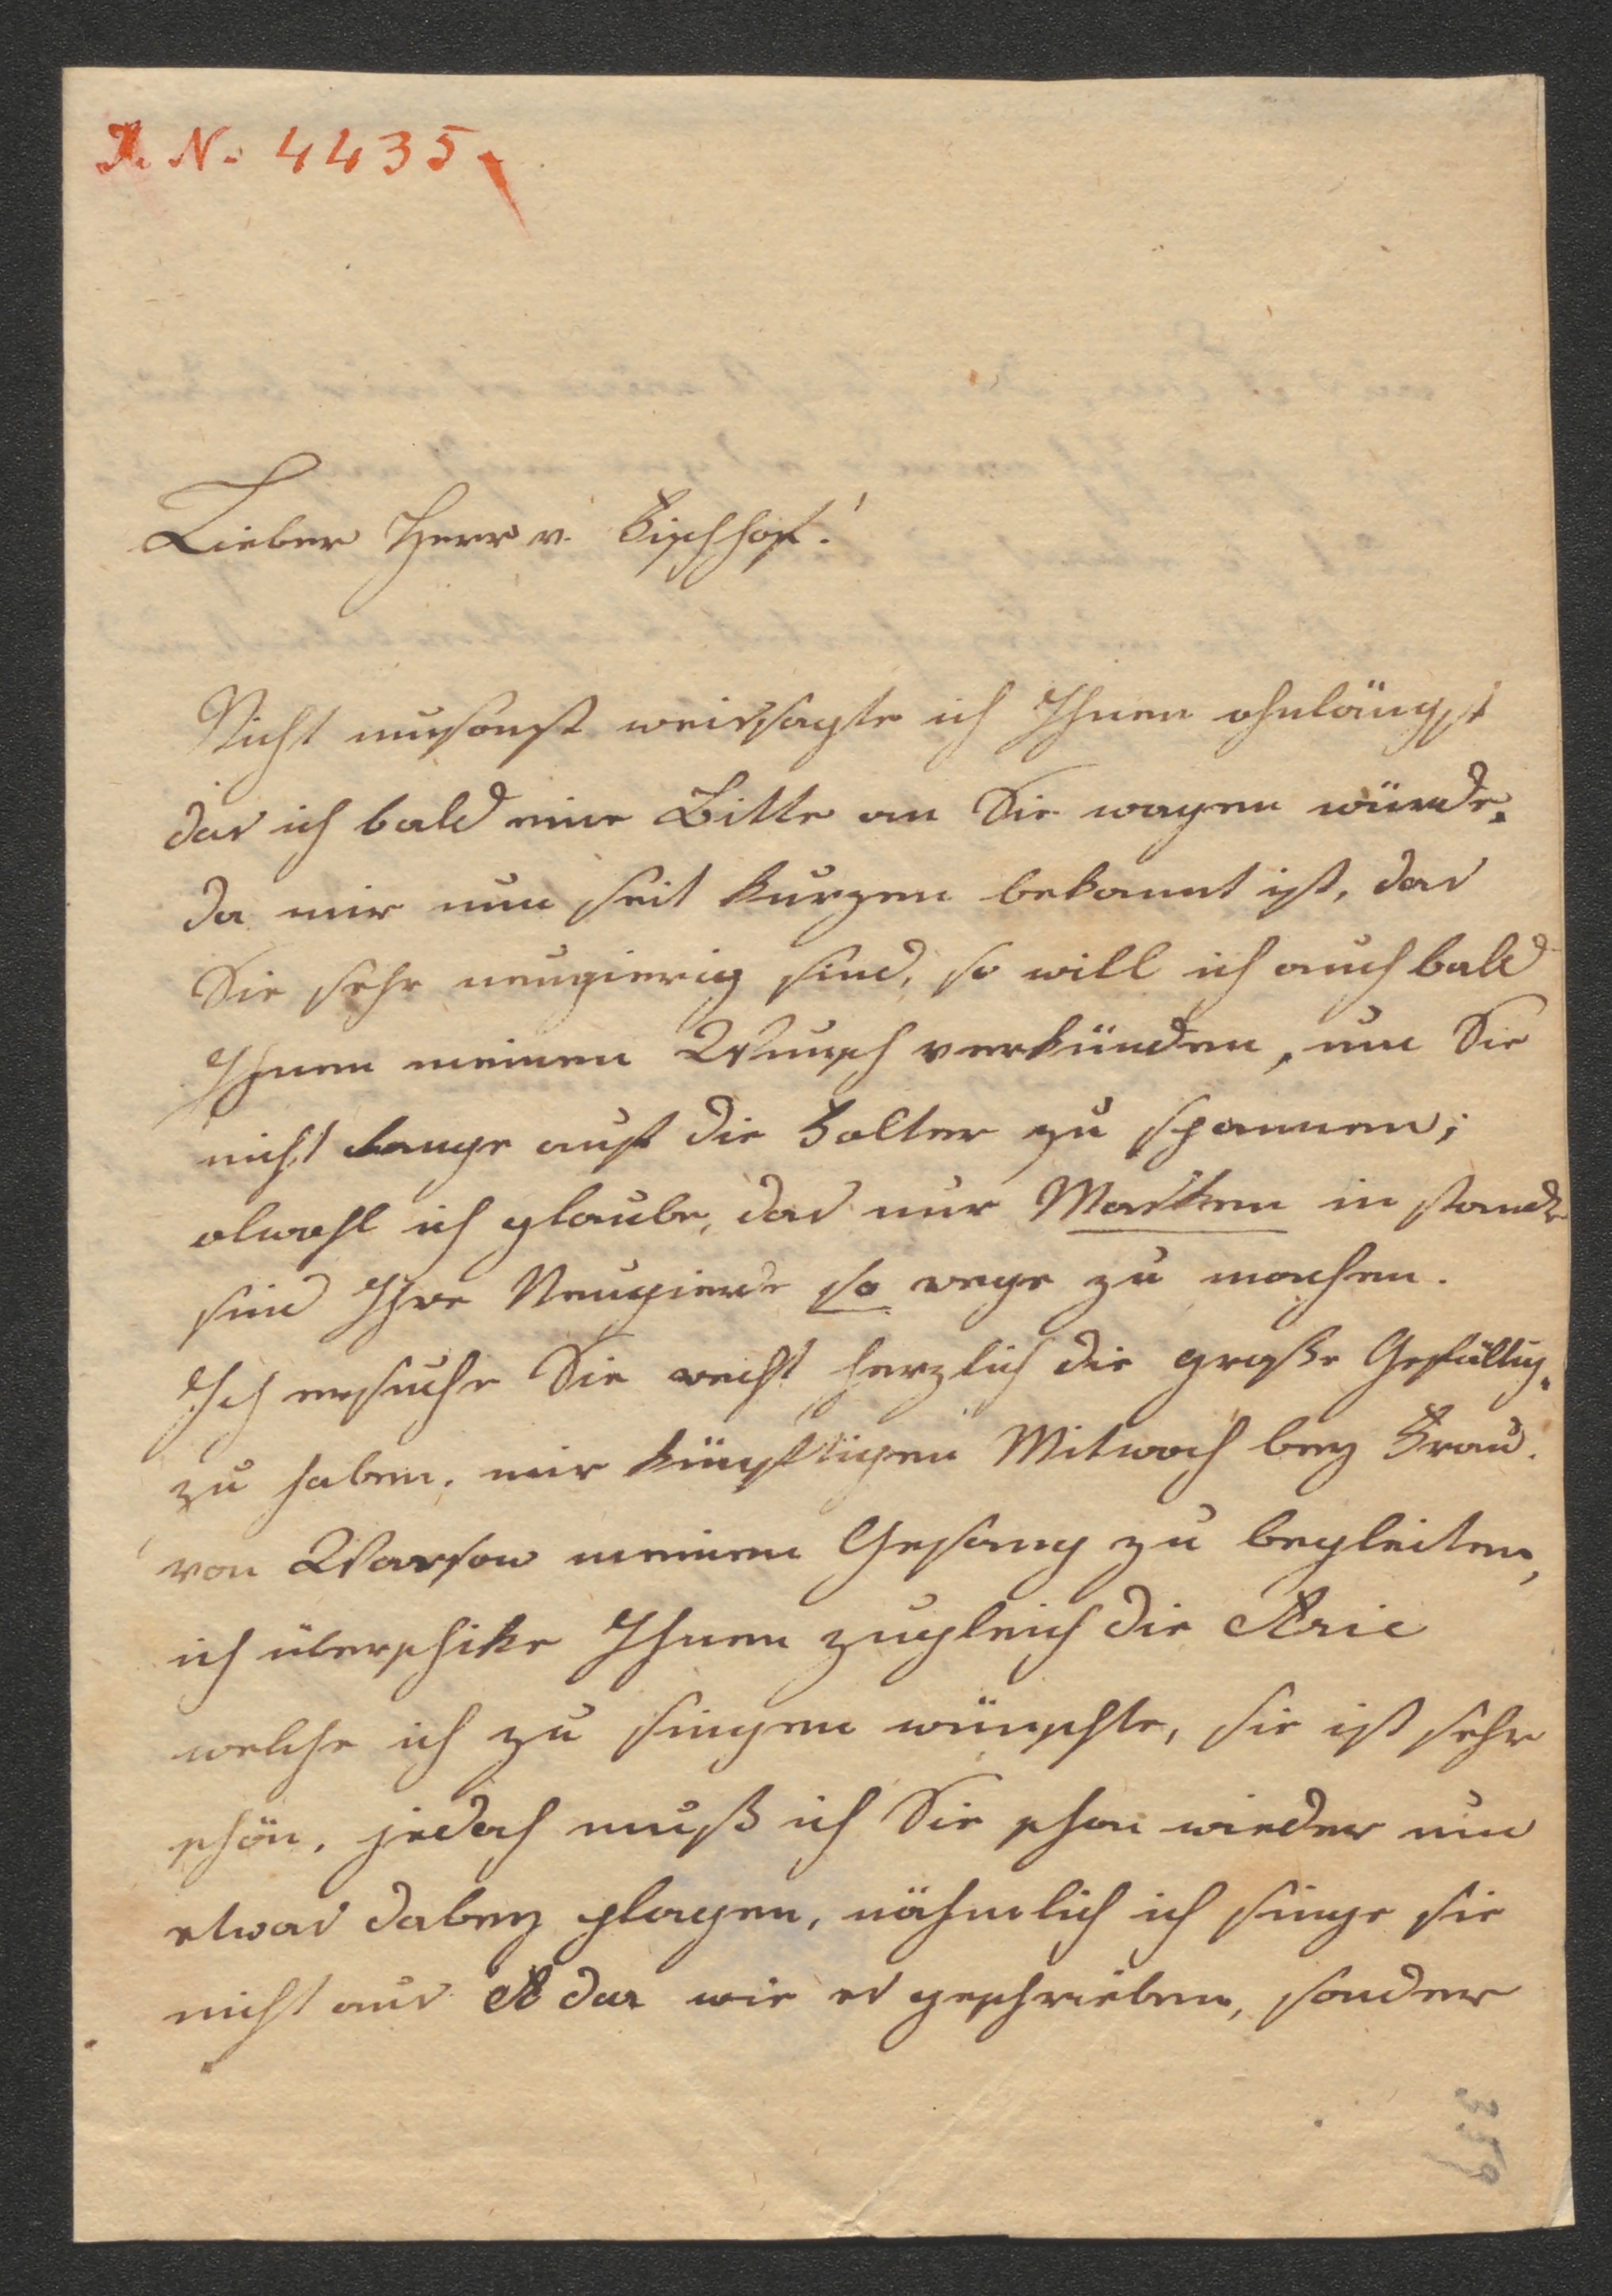 A. N. 4435
Lieber Herr v. Fischhof!
Nicht umsonst weissagte ich Ihnen ohnlängst
das ich bald eine Bitte an Sie wagen würde.
da mir nun seit kurzen bekannt ist, das
Sie sehr neugierig sind, so will ich auch bald
Ihnen meinen Wunsch verkünden, um Sie
nicht lange auf die Folter zu spannen;
obwohl ich glaube, das nur Masken in stande
sind Ihre Neugierde so rege zu machen.
Ich ersuche Sie recht herzlich die große Gefällig.
zu haben, mir künftigen Mitwoch bey Frau.
von Warsow meinen Gesang zu begleiten,
ich überschike Ihnen zugleich die Arie
welche ich zu singen wünschte, sie ist sehr
schön, jedoch muß ich Sie schon wieder um
etwas dabey plagen, nähmlich ich singe sie
nicht aus A dur wie es geschrieben, sonder